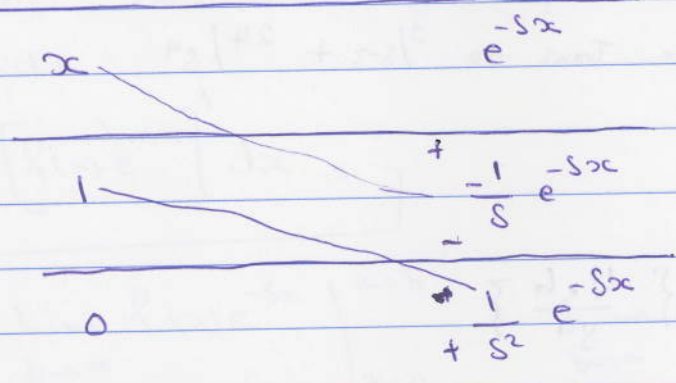 x e^{-sx}
+
1 -\frac{1}{s} e^{-sx}
-
0 + \frac{1}{s^2} e^{-sx}